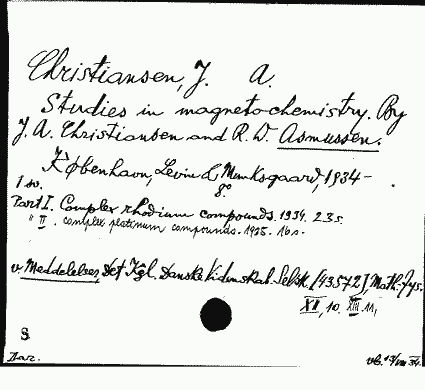 Christiansen, J. A.
Studies in magnetochemistry. By
J. A. Christiansen and R. W. Asmussen.
København, Levin & Munksgaard, 1934 - .
8°
Part I. Complex rhodium compounds. 1934. 23 s.
" II. complex platinum compounds. 1935. 16 s.
v. Meddelelser, Det Kgl. Danske Vidensk. Selsk. [43572], Math.-fys.
XII, 10. XIII. 11,